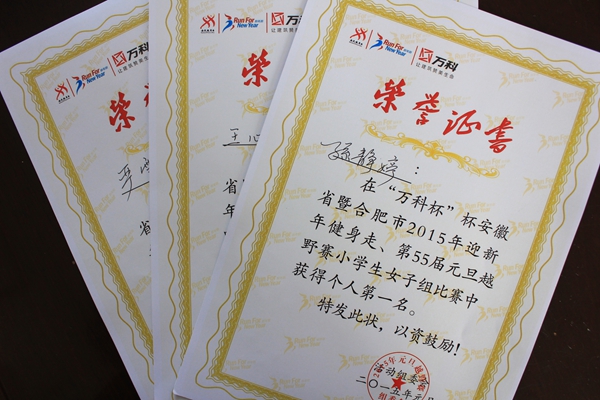 Run For
New Year
万科
让建筑赞美生命
荣誉
Run For
New Year
万科
让建筑赞美生命
荣
王心
省
年
Run For
New Year
万科
让建筑赞美生命
荣誉证书
孙静婷：
在“万科杯”杯安徽
省暨合肥市2015年迎新
年健身走、第55届元旦越
野赛小学生女子组比赛中
获得个人第一名。
特发此状，以资鼓励！
活动组委会
二〇一五年元月